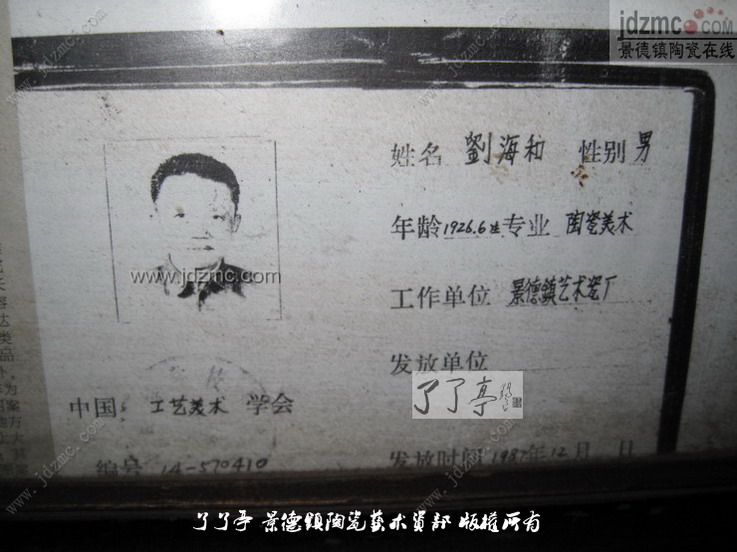 jdzmc.com
景德镇陶瓷在线
姓名 劉海和 性别 男
年龄 1926.6生 专业 陶瓷美术
www.jdzmc.com
工作单位 景德鎮艺术瓷厂
发放单位
了了亭
中国 工艺美术 学会
编号 14-570410
发放时间 1987年12月 日
了了亭 景德镇陶瓷艺术资部 版权所有